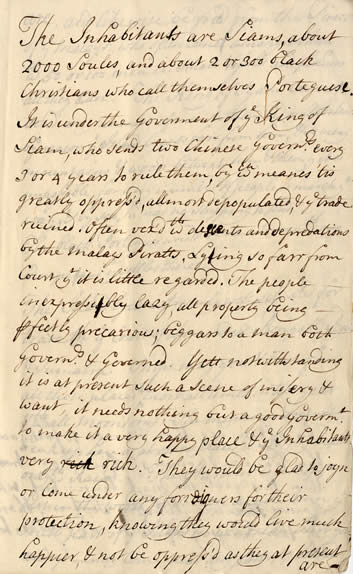 The Inhabitants are Siams, about
2000 Soules, and about 2 or 300 black
Christians who call themselves Porteguese.
It is under the Goverment of yͤ King of
Siam, who sends two Chinese Govern.ͬˢ every
3 or 4 years to rule them, by wͨʰ means tis
greatly oppress'd, allmost depopulated, & yͤ trade
ruined. Often vex'd wͭʰ descents and depredations
by the Malay Piratts. Lying so farr from
Court yͭ it is little regarded. The people
inexpressibly lazy, all property being
pfectly precarious; beggars to a man both
Govern.ͬˢ & Governed. Yett notwithstanding
it is at present such a scene of misery &
want, it needs nothing but a good Governm.ͭ
to make it a very happy place & yͤ Inhabitants
very rich rich. They would be glad to joyn
or come under any forreigners for their
protection, knowing they would live much
happier, & not be oppress'd as they at present
are